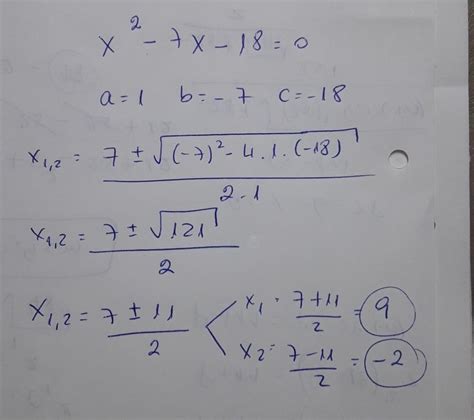 x² - 7x - 18 = 0
a = 1 b = -7 c = -18
x₁,₂ = (7 ± √((-7)² - 4.1.(-18))) / (2.1)
x₁,₂ = (7 ± √121) / 2
x₁,₂ = (7 ± 11) / 2
x₁ = (7+11) / 2 = 9
x₂ = (7-11) / 2 = -2